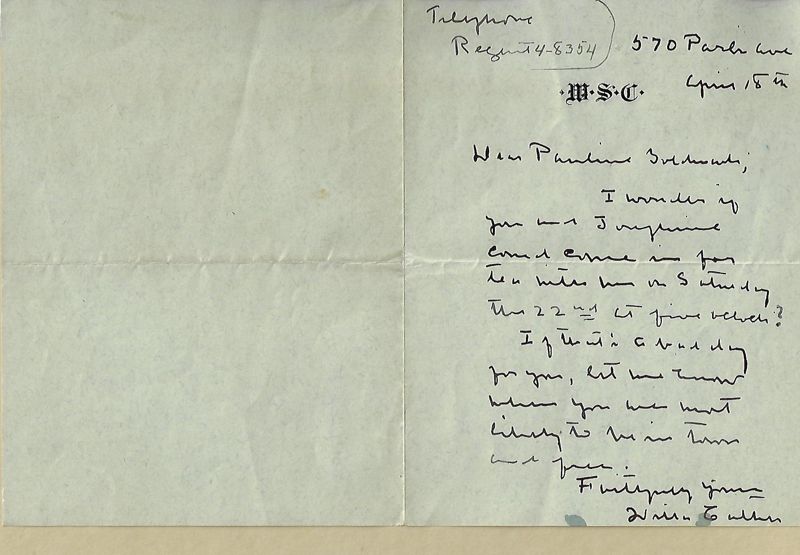 Telephone
Regent 4-8354
570 Park Ave
April 18th
·W·S·C·
Dear Pauline Goldmark;
I wonder if
you and Josephine
could come in for
tea with me on Saturday
the 22nd at five o'clock?
If that's a bad day
for you, let me know
when you are most
likely to be in town
and free.
Faithfully yours
Willa Cather